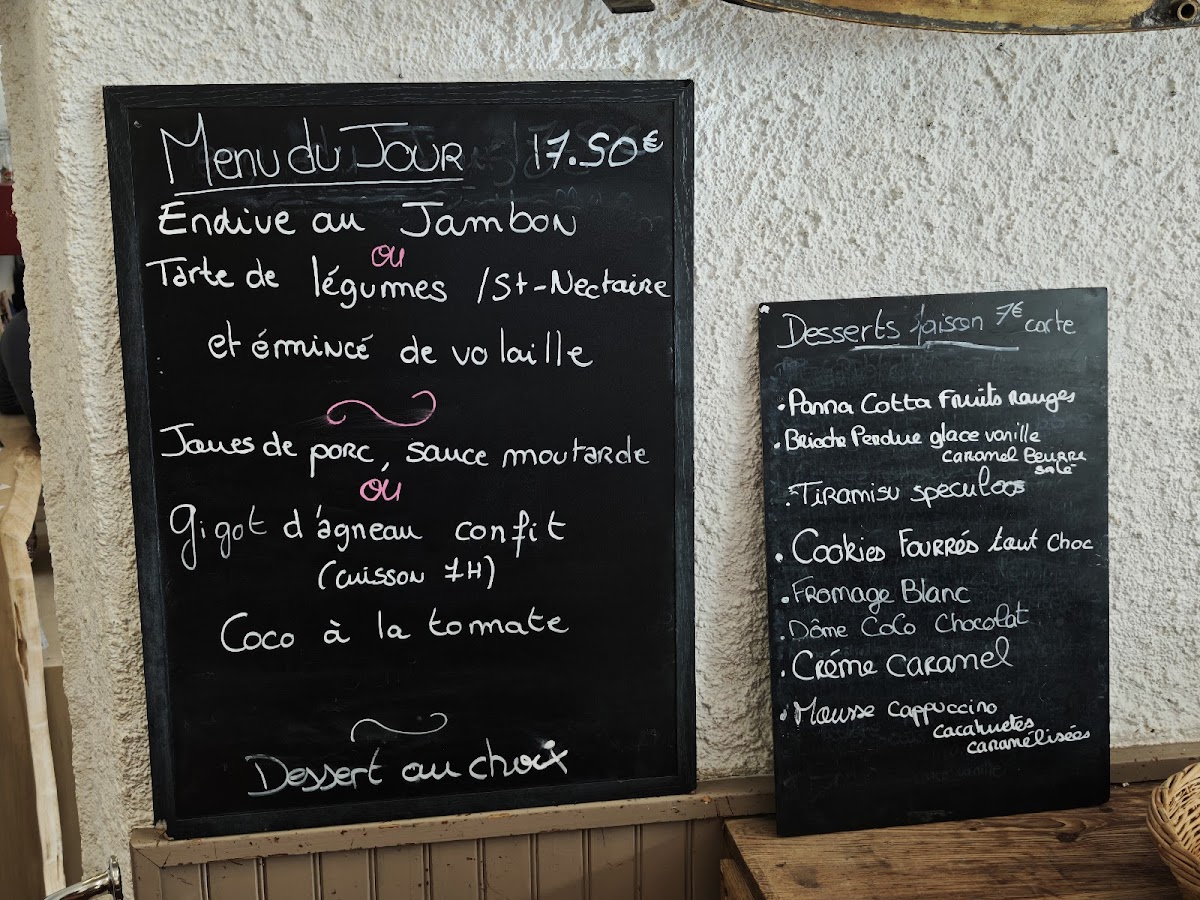 Menu du Jour 17.50€
Endive au Jambon
ou
Tarte de légumes / St-Nectaire
et émincé de volaille
Joues de porc, sauce moutarde
ou
Gigot d'agneau confit
(cuisson 7H)
Coco à la tomate
Dessert au choix
Desserts Maison 7€ carte
• Panna Cotta Fruits rouges
• Brioche Perdue glace vanille
caramel Beurre
salé
• Tiramisu speculoos
• Cookies Fourrés tout choc
• Fromage Blanc
• Dôme Coco Chocolat
• Créme Caramel
• Mousse cappuccino
cacahuetes
caramélisées